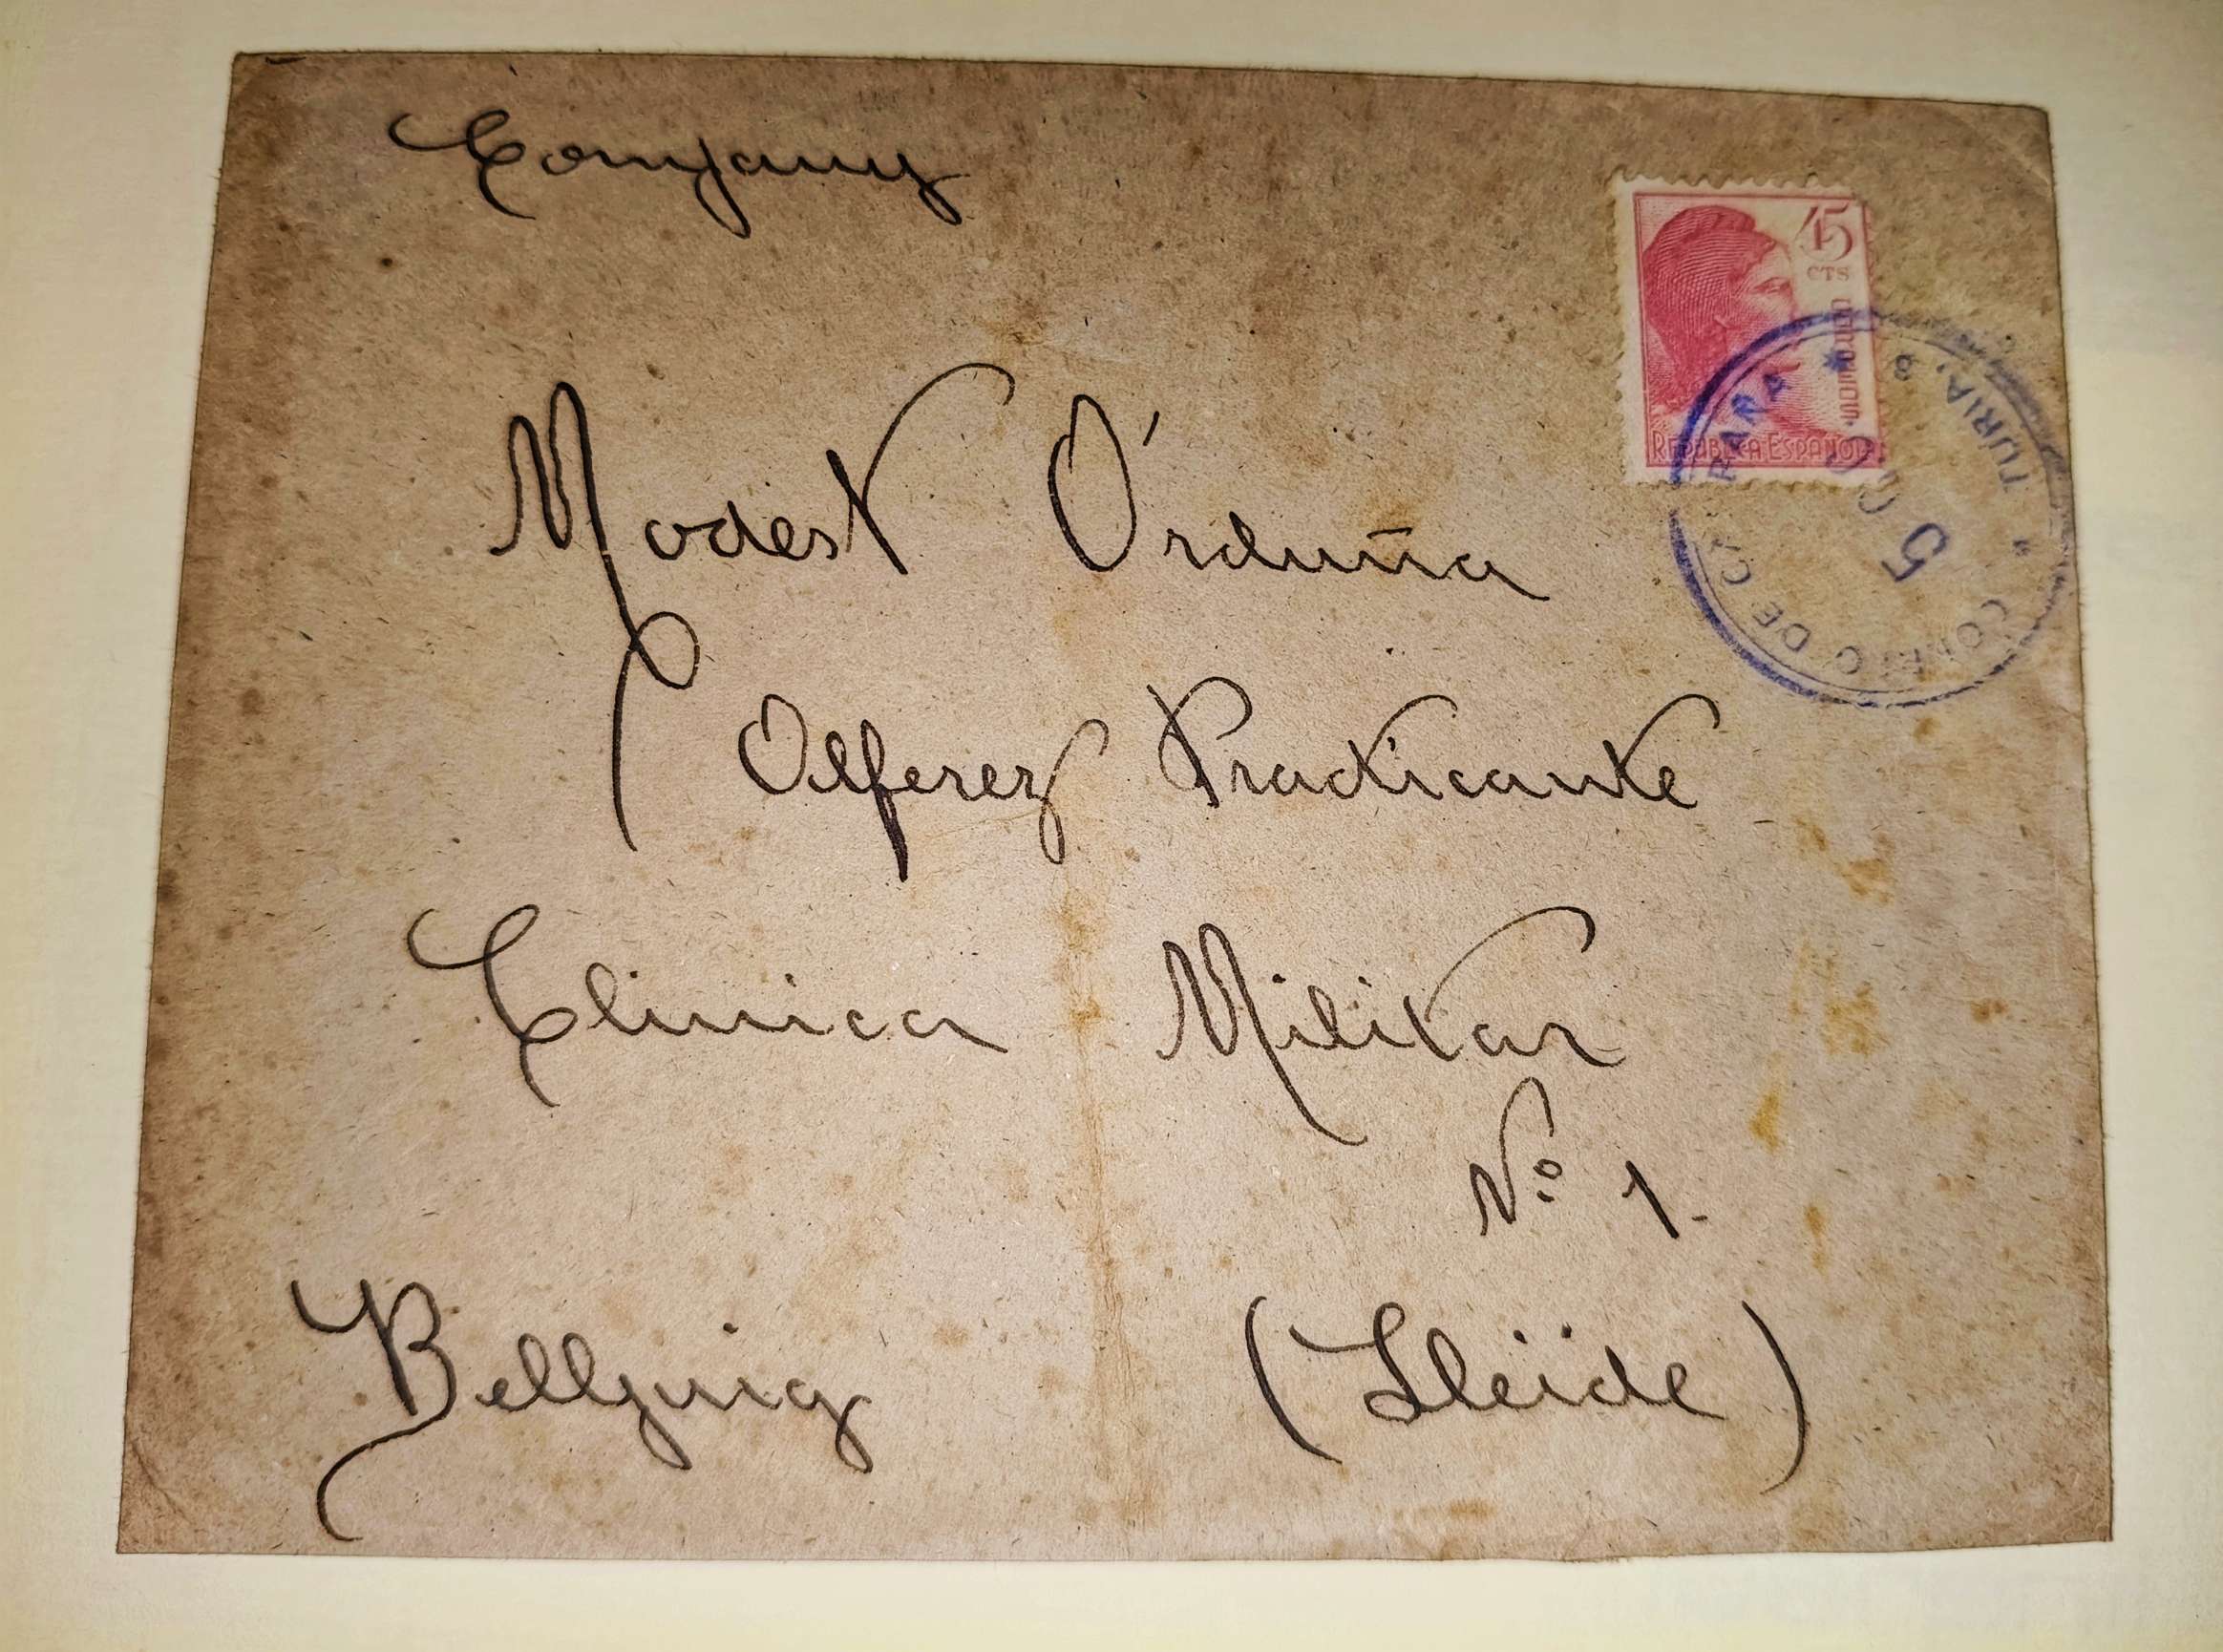 Company
45
CTS
CORREOS
REPÚBLICA ESPAÑOLA
* TURIA, 8 * CORREO DE CAMPAÑA
5
Modest Órduña
Alferez Practicante
Clinica Militar
Nº 1.
Bellpuig (Lleide)